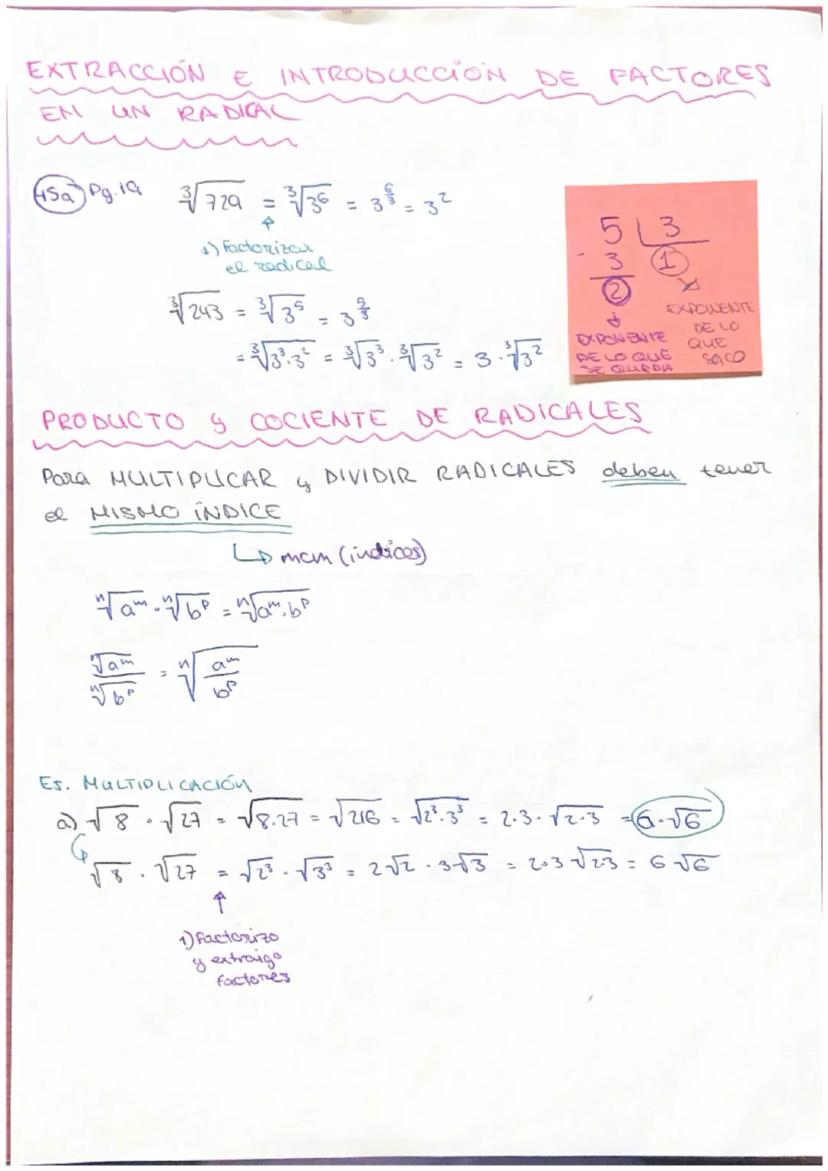 EXTRACCIÓN E INTRODUCCIÓN DE FACTORES
EN UN RADICAL
45a Pg.19 ∛729 = ∛3⁶ = 3^(6/3) = 3²
1) Factorizar
el radical
∛243 = ∛3⁵ = 3^(5/3)
= ∛(3³·3²) = ∛3³ · ∛3² = 3 · ∛3²
5 | 3
- 3 1
2
EXPONENTE
DE LO QUE
SE QUEDA
EXPONENTE
DE LO
QUE
SACO
PRODUCTO y COCIENTE DE RADICALES
Para MULTIPLICAR y DIVIDIR RADICALES deben tener
el MISMO ÍNDICE
↳ mcm (índices)
ⁿ√aᵐ · ⁿ√bᵖ = ⁿ√(aᵐ·bᵖ)
ⁿ√aᵐ / ⁿ√bᵖ = ⁿ√(aᵐ/bᵖ)
EJ. MULTIPLICACIÓN
a) √8 · √27 = √(8·27) = √216 = √(2³·3³) = 2·3·√(2·3) = 6·√6
√8 · √27 = √2³ · √3³ = 2√2 · 3√3 = 2·3√(2·3) = 6√6
1) Factorizo
y extraigo
factores